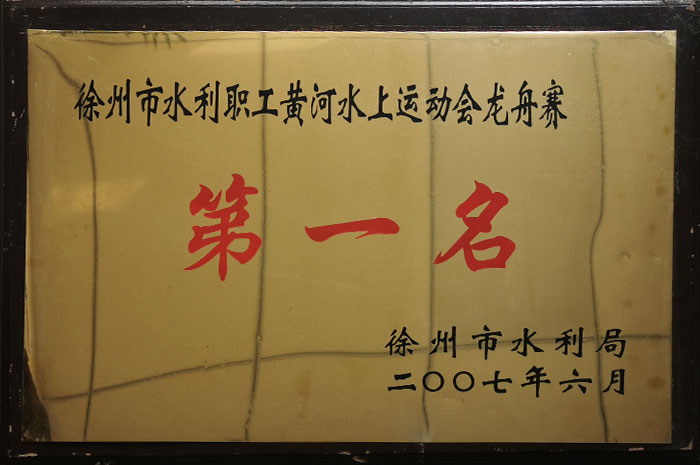 徐州市水利职工黄河水上运动会龙舟赛
第一名
徐州市水利局
二〇〇七年六月